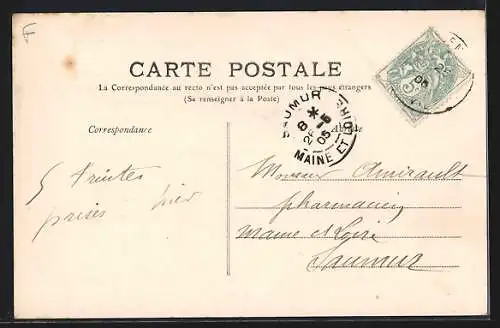 F
CARTE POSTALE
La Correspondance au recto n'est pas acceptée par tous les pays étrangers
(Se renseigner à la Poste)
SAUMUR
8 *
26 -5
05
MAINE ET LOIRE
Correspondance
Adresse
5
prises hier
Monsieur Amirault
pharmacien
Maine et Loire
Saumur